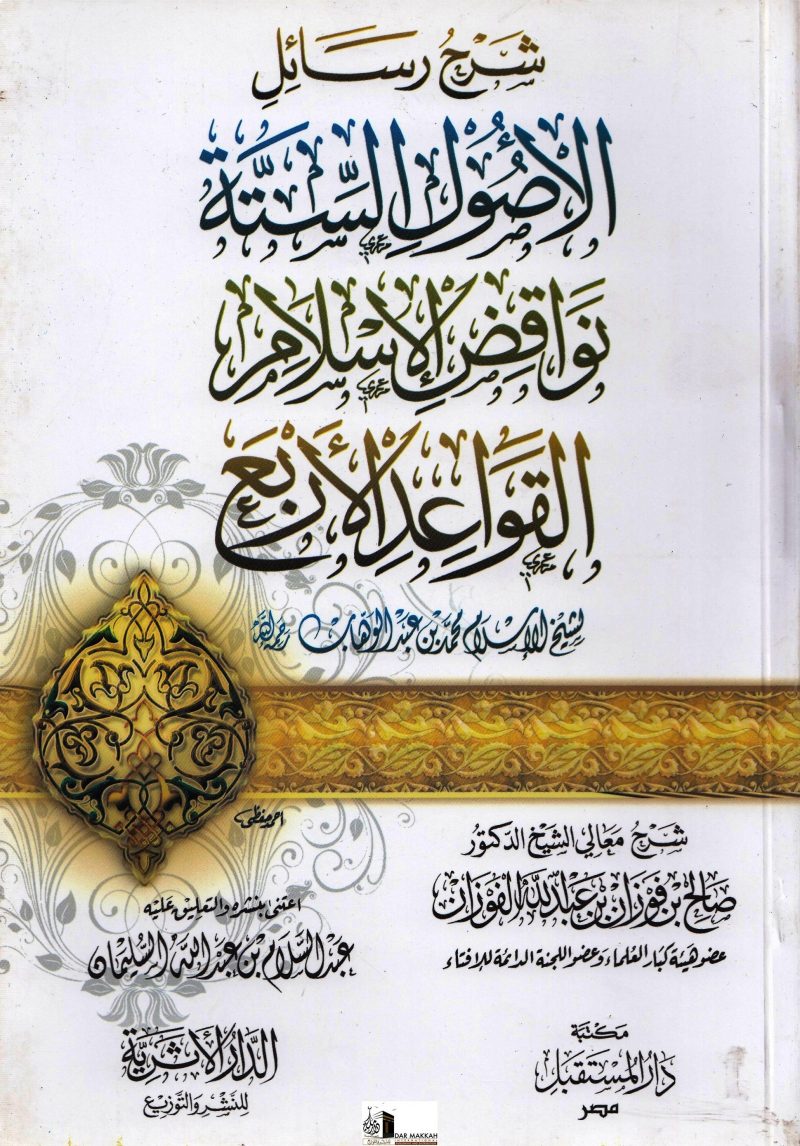 شَرْحُ رَسَائِلِ
الأُصُولِ السِّتَّةِ
نَوَاقِضِ الإِسْلَامِ
القَوَاعِدِ الأَرْبَعِ
لشيخ الإسلام محمد بن عبد الوهاب رحمه الله
احمد حفظي
شرح معالي الشيخ الدكتور
صالح بن فوزان بن عبد الله الفوزان
عضو هيئة كبار العلماء وعضو اللجنة الدائمة للإفتاء
اعتنى بنشره والتعليق عليه
عبد السلام بن عبد الله السليمان
مكتبة
دار المستقبل
مصر
الدار الأثرية
للنشر والتوزيع
DAR MAKKAH